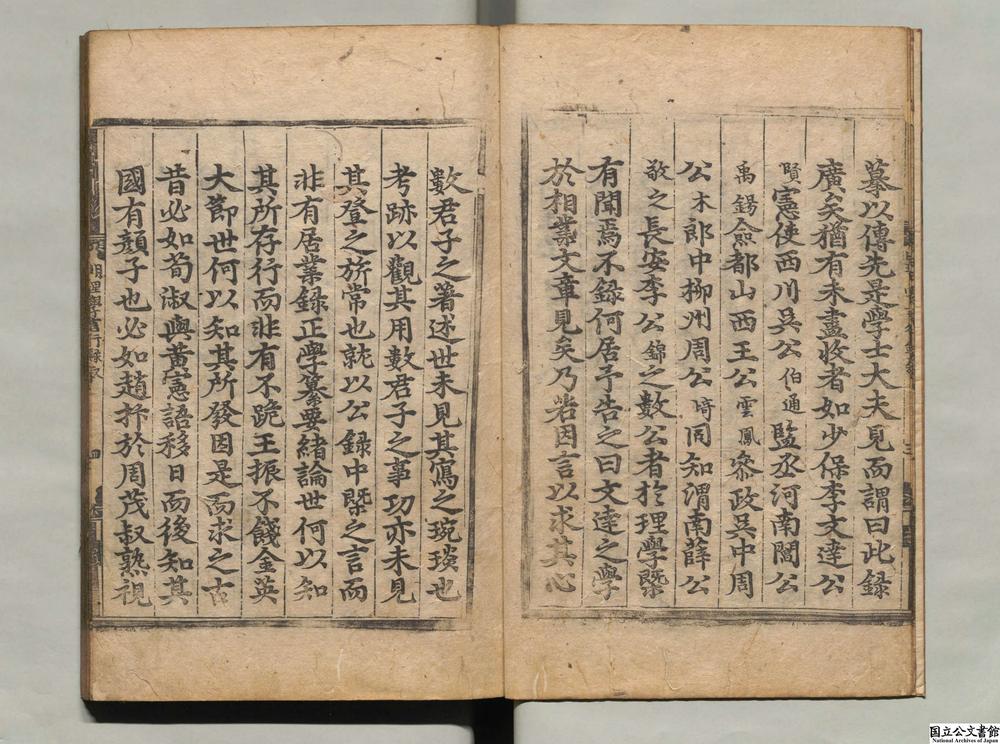 摹以傳先是學士大夫見而謂曰此錄
廣矣猶有未盡收者如少保李文達公
賢憲使西川吳公伯通監丞河南閻公
禹錫僉都山西王公雲鳳叅政吳中周
公木郎中柳州周公㙺同知渭南薛公
敬之長安李公錦之數公者於理學槩
有聞焉不錄何居予告之曰文達之學
於相業文章見矣乃若因言以求其心
數君子之著述世未見其寫之琬琰也
考跡以觀其用數君子之事功亦未見
其登之旂常也就以公錄中槩之言而
非有居業録正學纂要緒論世何以知
其所存行而非有不跪王振不餞金英
大節世何以知其所發因是而求之古
昔必如荀淑與黃憲語移日而後知其
國有顏子也必如趙抃於周茂叔熟視
明理學
四
国立公文書館
National Archives of Japan